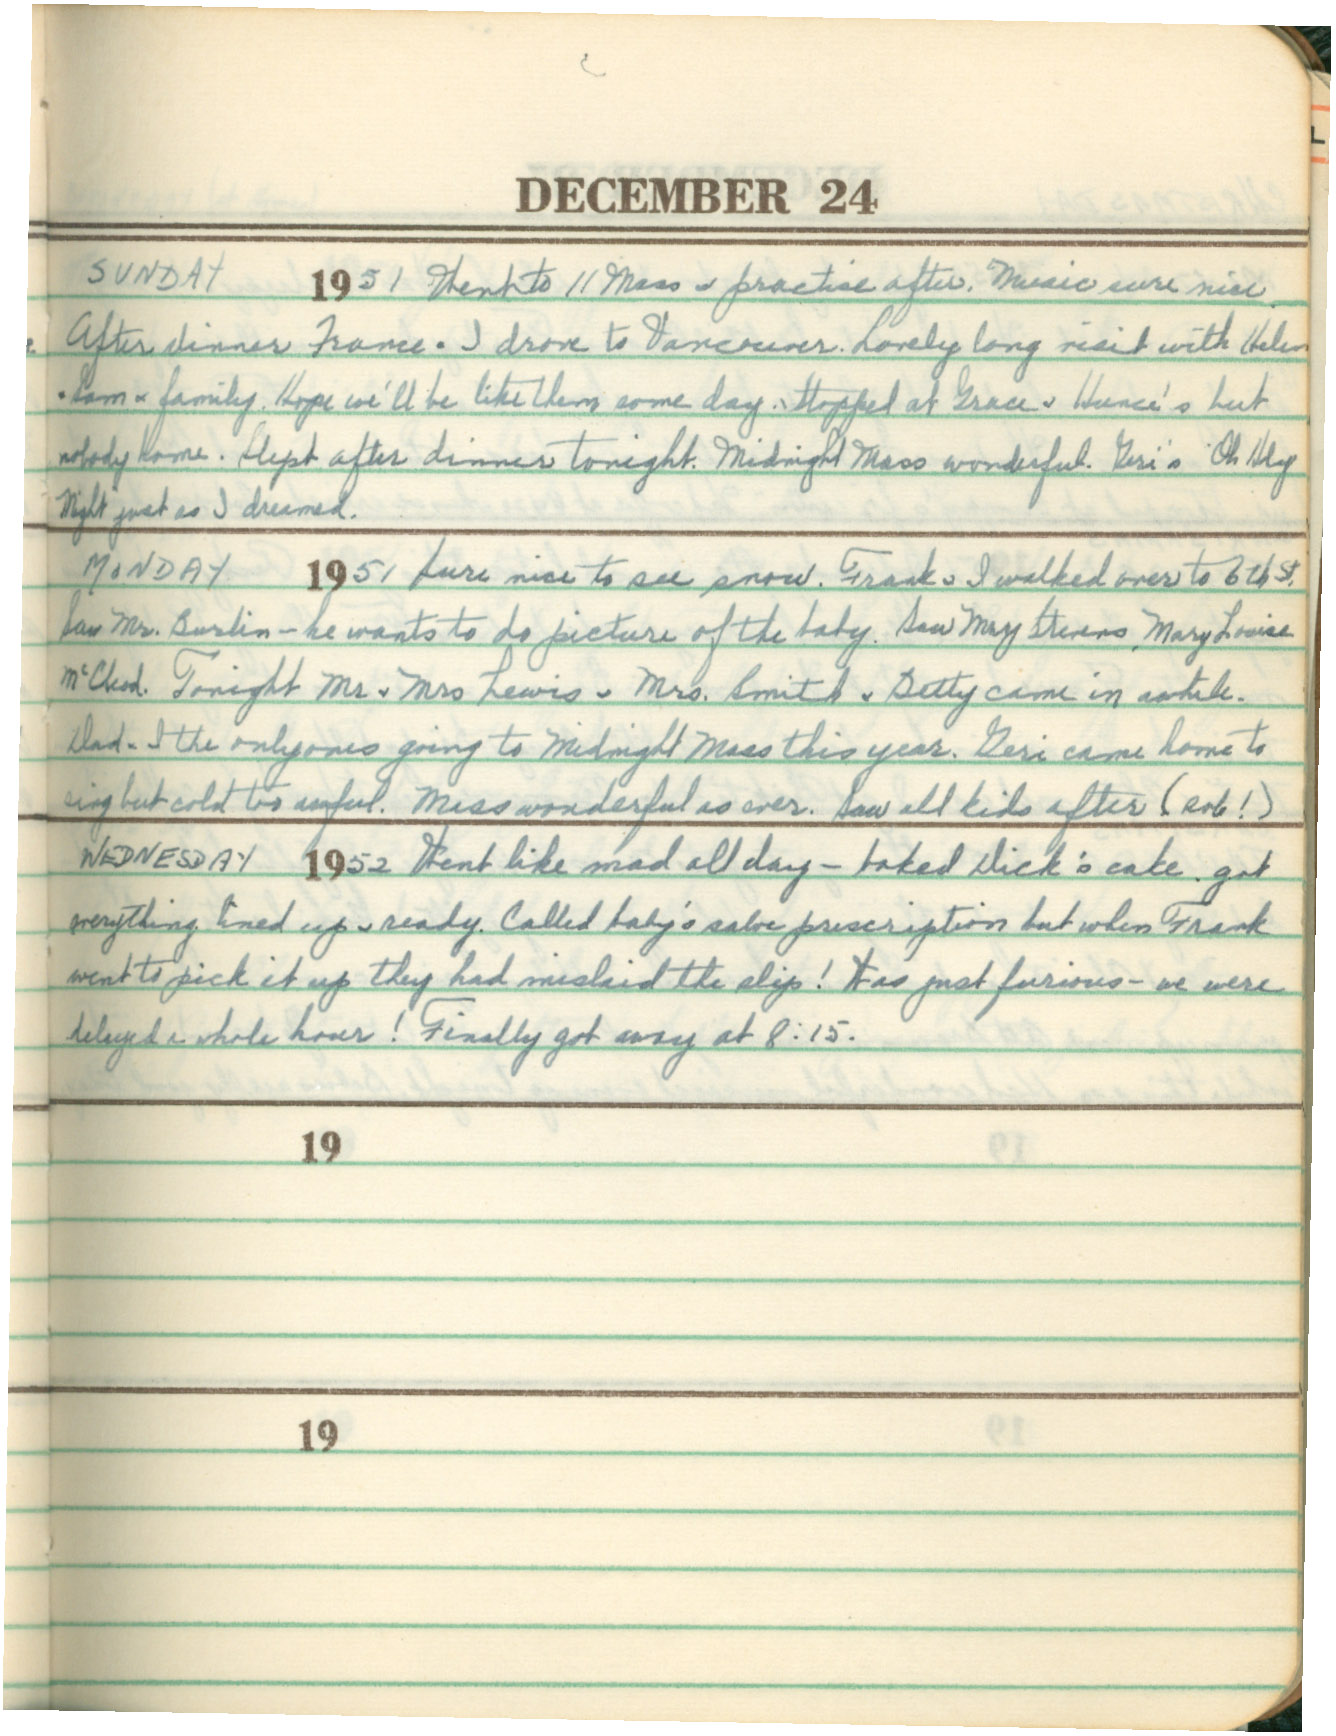 DECEMBER 24
SUNDAY 1951 Went to 11 Mass & practise after. Music sure nice.
After dinner France & I drove to Vancouver. Lovely long visit with Helen
& Sam & family. Hope we'll be like them some day. Stopped at Grace & Hunce's but
nobody home. Slept after dinner tonight. Midnight Mass wonderful. Geri's "Oh Holy
Night" just as I dreamed.
MONDAY 1951 Sure nice to see snow. Frank & I walked over to 6th St.
Saw Mr. Burlin - he wants to do picture of the baby. Saw Mary Stevens, Mary Louise
McCleod. Tonight Mr & Mrs Lewis & Mrs. Smith & Betty came in awhile.
Dad & I the only ones going to Midnight Mass this year. Geri came home to
sing but cold too awful. Mass wonderful as ever. Saw all kids after (sob!)
WEDNESDAY 1952 Went like mad all day - baked Dick's cake, got
everything lined up & ready. Called baby's salve prescription but when Frank
went to pick it up they had mislaid the slip! Was just furious - we were
delayed a whole hour! Finally got away at 8:15.
19
19